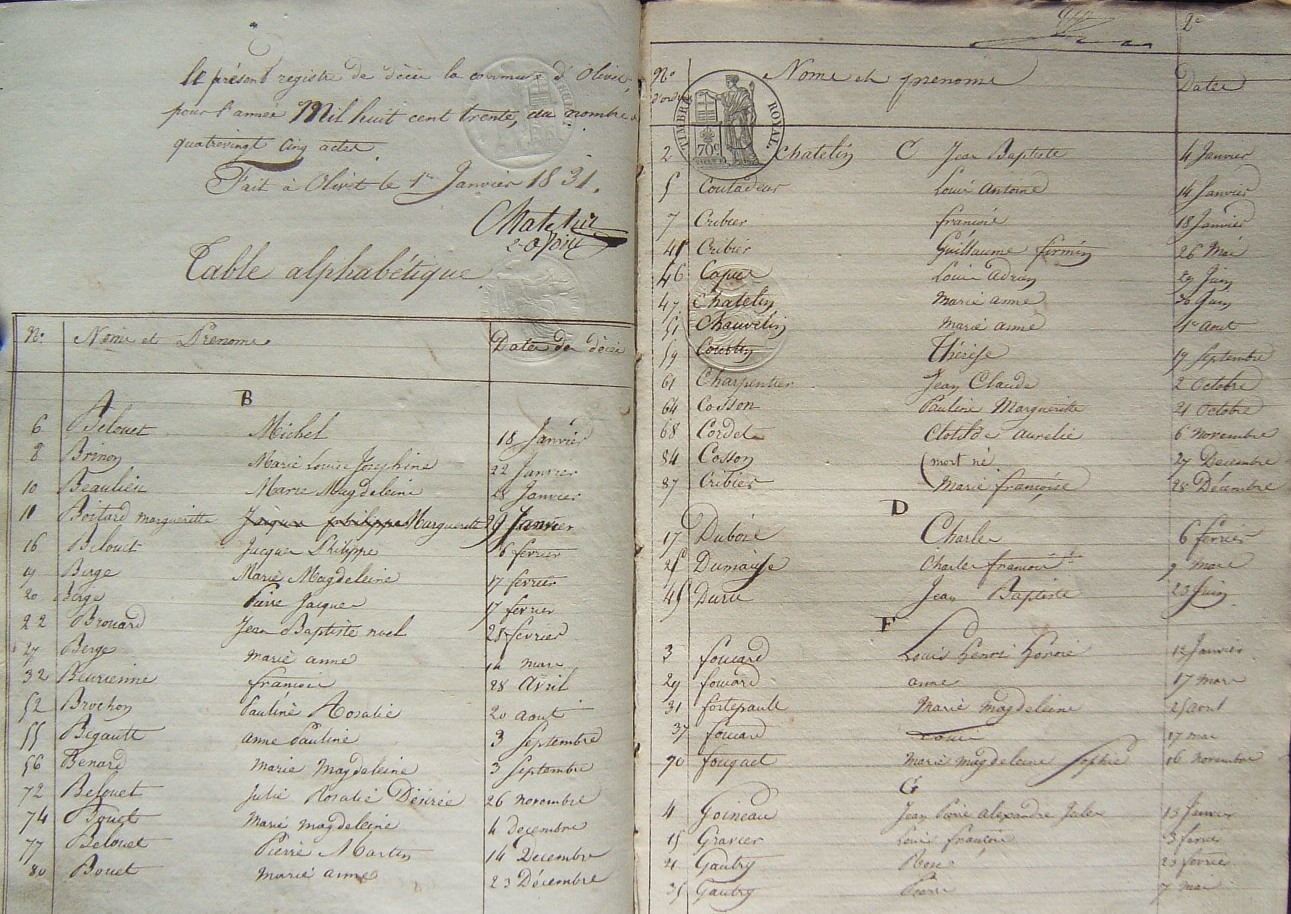 Le présent registre de décès la commune d'Olivet,
pour l'année Mil huit cent trente, au nombre
quatrevingt cinq actes
Fait à Olivet le 1er Janvier 1831.
Chatelin
Table alphabétique
No. Noms et Prénoms Dates des décès
B
6 Belouet Michel 18 Janvier
8 Brinon Marie Louise Joséphine 22 Janvier
10 Beaulieu Marie Magdeleine 28 Janvier
11 Boitard margueritte Jacques philippe Margueritte 29 Janvier
16 Belouet Jacques Philippe 6 fevrier
19 Berge Marie Magdeleine 17 fevrier
20 Berge Pierre Jacques 17 fevrier
22 Brouard Jean Baptiste noel 25 fevrier
27 Berge marie anne 14 mars
32 Beurienne francois 28 Avril
52 Brochon Pauline Rosalie 20 aout
55 Bigault anne Pauline 3 Septembre
56 Benard marie Magdeleine 3 Septembre
72 Belouet Julie Rosalie Désirée 26 novembre
74 Bouet Marie magdeleine 4 decembre
77 Belouet Pierre Martin 14 Decembre
80 Bouet marie anne 23 Décembre
2e
No d'ordre Noms et prenoms Dates
TIMBRE ROYAL.
70c
C
2 Chatelin Jean Baptiste 4 Janvier
5 Couladeur Louis Antoine 14 Janvier
7 Cribier francois 18 Janvier
41 Cribier Guillaume firmin 26 Mai
46 Capue Louis adrien 29 Juin
47 Chatelin Marie anne 30 Juin
51 Chauvelin Marie anne 1er Aout
59 Courtin Thérèse 19 Septembre
61 Charpentier Jean Claude 2 Octobre
64 Cosson Pauline Margueritte 21 Octobre
68 Cordet Clotilde aurelie 6 novembre
84 Cosson (mort né 27 Decembre
87 Cribier Marie françoise 28 Décembre
D
17 Dubois Charles 6 fevrier
25 Dumaige Charles francois 9 mars
45 Duru Jean Baptiste 23 Juin
F
3 foucard Louis henri honoré 12 Janvier
29 foucard anne 17 mars
31 fortepault Marie magdeleine 25 avril
37 foucard Louis 17 mai
70 fouquet Marie magdeleine Sophie 16 novembre
G
4 Goineau Jean Pierre alexandre Jules 13 Janvier
15 Gravier Louis François 3 fevrier
21 Gautry Rose 23 fevrier
35 Gautry Pierre 7 mai